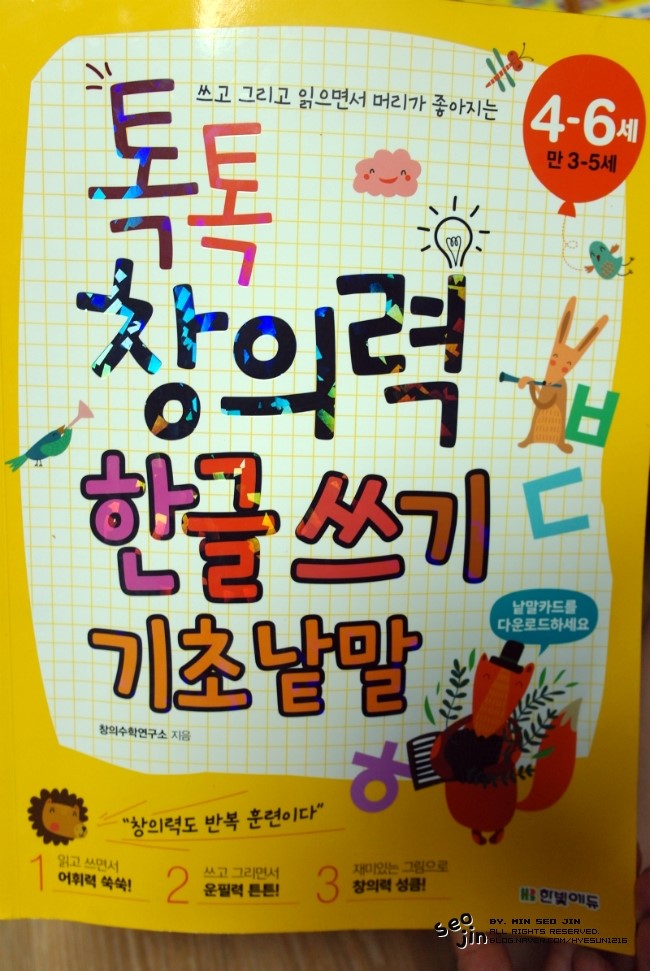 쓰고 그리고 읽으면서 머리가 좋아지는
4-6세
만 3-5세
톡톡
창의력
한글 쓰기
기초 낱말
ㅂ
ㄷ
낱말카드를
다운로드하세요
창의수학연구소 지음
ㅎ
"창의력도 반복 훈련이다"
1 읽고 쓰면서
어휘력 쑥쑥!
2 쓰고 그리면서
운필력 튼튼!
3 재미있는 그림으로
창의력 성큼!
한빛에듀
seo
jin
BY. MIN SEO JIN
ALL RIGHTS RESERVED.
BLOG.NAVER.COM/HYESUN1216